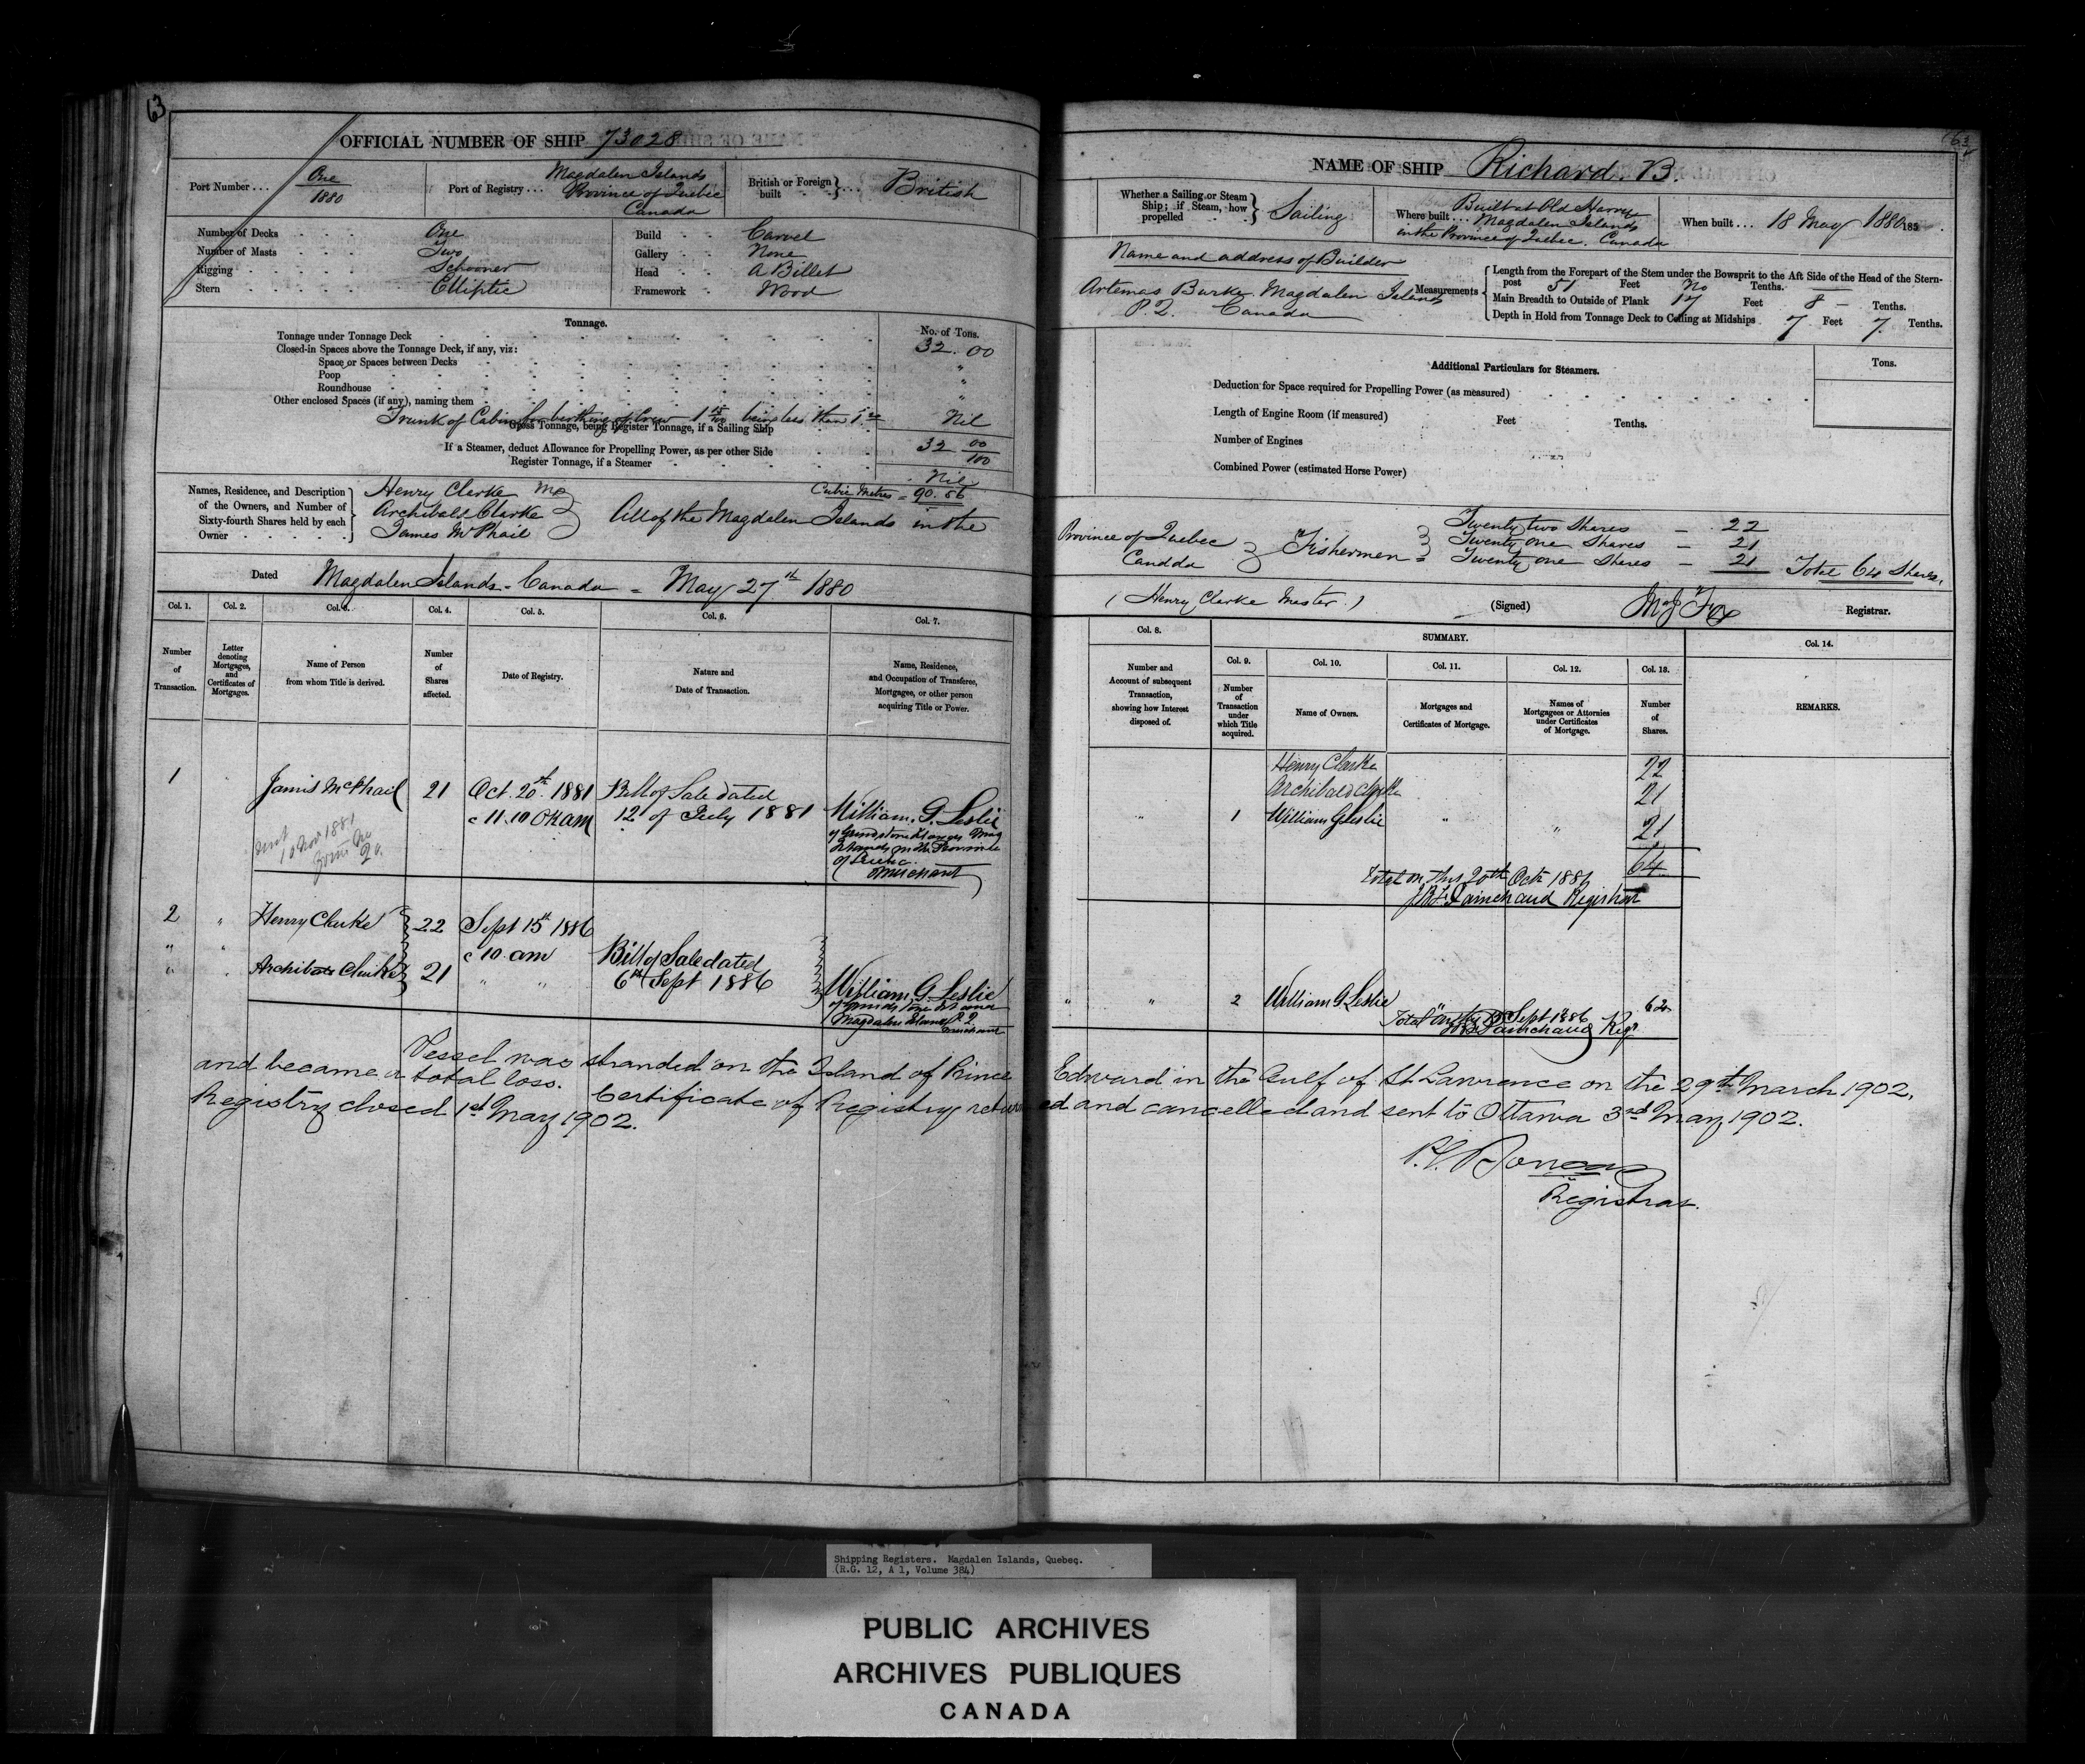 63
OFFICIAL NUMBER OF SHIP 73028
Port Number . . . One 1880
Port of Registry . . . Magdalen Islands Province of Quebec Canada
British or Foreign built . . . British
Number of Decks One
Number of Masts Two
Rigging Schooner
Stern Elliptic
Build Carvel
Gallery None
Head A Billet
Framework Wood
Tonnage.
No. of Tons.
Tonnage under Tonnage Deck 32.00
Closed-in Spaces above the Tonnage Deck, if any, viz:
Space or Spaces between Decks "
Poop "
Roundhouse "
Other enclosed Spaces (if any), naming them
Trunk of Cabin for berthing of Crew being less than Nil
Gross Tonnage, being Register Tonnage, if a Sailing Ship 32 00/100
If a Steamer, deduct Allowance for Propelling Power, as per other Side
Register Tonnage, if a Steamer Nil
Cubic Metres = 90.56
Names, Residence, and Description of the Owners, and Number of Sixty-fourth Shares held by each Owner
Henry Clarke
Archibald Clarke
James McPhail
All of the Magdalen Islands in the
Dated Magdalen Islands - Canada - May 27th 1880
Col. 1. Col. 2. Col. 3. Col. 4. Col. 5. Col. 6. Col. 7.
Number of Transaction.
Letter denoting Mortgages, and Certificates of Mortgages.
Name of Person from whom Title is derived.
Number of Shares affected.
Date of Registry.
Nature and Date of Transaction.
Name, Residence, and Occupation of Transferee, Mortgagee, or other person acquiring Title or Power.
1 James McPhail 21 Oct. 20th. 1881 Bill of Sale dated
11.10 am 12 of July 1881 William. G. Leslie
of Grindstone
Islands in the Province
of Quebec
Merchant
10 Nov 1881
2 " Henry Clarke 22 Sept 15th 1886
" " 10 am Bill of Sale dated
" " Archibald Clarke 21 " " 6th Sept 1886 William, G. Leslie
Magdalen Islands P.Q.
Merchant
NAME OF SHIP Richard. B.
Whether a Sailing or Steam Ship; if Steam, how propelled Sailing
Where built . . . Built at Old Harry Magdalen Islands in the Province of Quebec. Canada
When built . . . 18 May 1880 185
Name and address of Builder
Artemas Burke. Magdalen Islands
P.Q. Canada
Measurements
Length from the Forepart of the Stem under the Bowsprit to the Aft Side of the Head of the Stern-
post 51 Feet No Tenths.
Main Breadth to Outside of Plank 17 Feet 8 — Tenths.
Depth in Hold from Tonnage Deck to Ceiling at Midships 7 Feet 7. Tenths.
Additional Particulars for Steamers.
Tons.
Deduction for Space required for Propelling Power (as measured)
Length of Engine Room (if measured) Feet Tenths.
Number of Engines
Combined Power (estimated Horse Power)
Province of Quebec Canada
Fishermen =
Twenty two Shares — 22
Twenty one Shares — 21
Twenty one Shares — 21 Total 64 Shares.
( Henry Clarke Master. ) (Signed) Fox Registrar.
Col. 8. SUMMARY. Col. 14.
Col. 9. Col. 10. Col. 11. Col. 12. Col. 13.
Number and Account of subsequent Transaction, showing how Interest disposed of.
Number of Transaction under which Title acquired.
Name of Owners.
Mortgages and Certificates of Mortgage.
Names of Mortgagees or Attornies under Certificates of Mortgage.
Number of Shares.
REMARKS.
Henry Clarke 22
Archibald Clarke 21
" 1 William G Leslie " " 21
64
Total on this 20th Octr 1886
Painchaud Registrar
" " 2 William G Leslie
Total Sept 1886
Painchaud Regr
Vessel was stranded on the Island of Prince Edward in the Gulf of St Lawrence on the 29th March 1902,
and became a total loss. Certificate of Registry returned and cancelled and sent to Ottawa 3rd May 1902.
Registry closed 1st May 1902.
Registrar.
Shipping Registers. Magdalen Islands, Quebec.
(R.G. 12, A 1, Volume 384)
PUBLIC ARCHIVES
ARCHIVES PUBLIQUES
CANADA